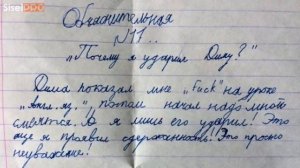 SiselDOO
Объяснительная
N11..
"Почему я ударил Диму?"
Дима показал мне "Fuck" на уроке
"Англ.яз.", потом начал надо мной
смеятся. А я лишь его ударил! Это
еще я проявил сдержанность! Это просто
неуважение!